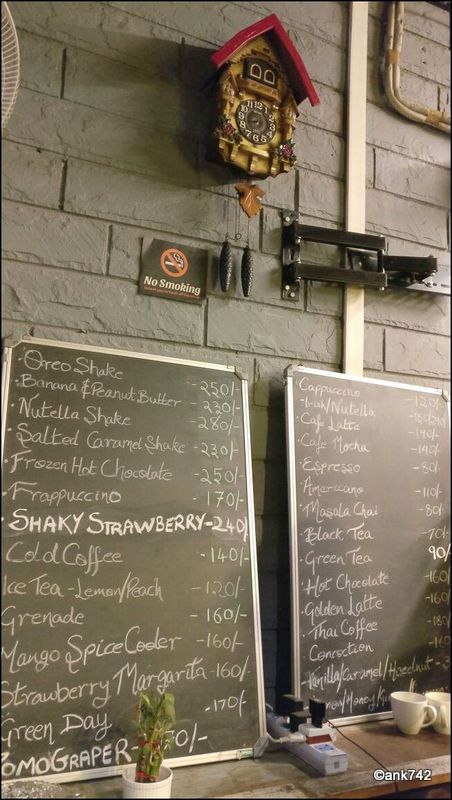 No Smoking
·Oreo Shake -250/-
·Banana & Peanut Butter -230/-
·Nutella Shake -280/-
·Salted Caramel Shake -230/-
·Frozen Hot Chocolate -250/-
·Frappuccino -170/-
·SHAKY STRAWBERRY-240/-
Cold Coffee -140/-
Ice Tea -Lemon/Peach -120/-
Grenade -160/-
Mango Spice Cooler -160/-
Strawberry Margarita -160/-
Green Day -170/-
POMOGRAPER-
Cappuccino -120/-
·Irish/Nutella
·Cafe Latte -140/-
·Cafe Mocha -140/-
·Espresso -80/-
·Americano -110/-
·Masala Chai -80/-
·Black Tea -70/-
·Green Tea 90/-
·Hot Chocolate -160/-
·Golden Latte -160
·Thai Coffee -180
Concoction -160
·Vanilla/Caramel/Hazelnut
©ank742